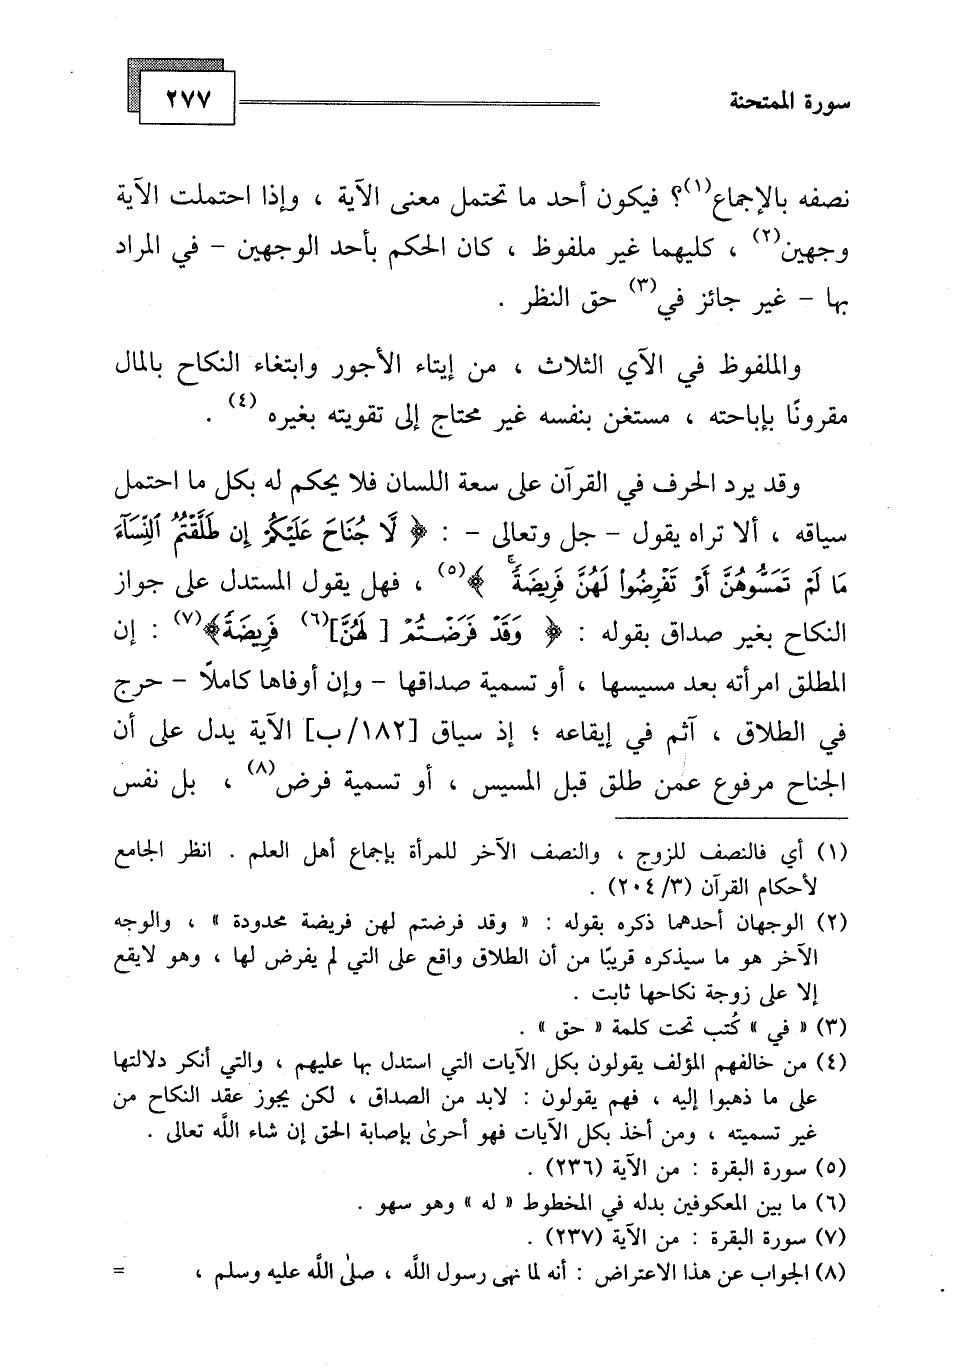 سورة الممتحنة ٢٧٧
نصفه بالإجماع(١)؟ فيكون أحد ما تحتمل معنى الآية ، وإذا احتملت الآية
وجهين(٢) ، كليهما غير ملفوظ ، كان الحكم بأحد الوجهين - في المراد
بها - غير جائز في(٣) حق النظر .
والملفوظ في الآي الثلاث ، من إيتاء الأجور وابتغاء النكاح بالمال
مقرونًا بإباحته ، مستغن بنفسه غير محتاج إلى تقويته بغيره (٤) .
وقد يرد الحرف في القرآن على سعة اللسان فلا يحكم له بكل ما احتمل
سياقه ، ألا تراه يقول - جل وتعالى - : ﴿ لَّا جُنَاحَ عَلَيْكُمْ إِن طَلَّقْتُمُ ٱلنِّسَآءَ
مَا لَمْ تَمَسُّوهُنَّ أَوْ تَفْرِضُوا۟ لَهُنَّ فَرِيضَةً ۚ ﴾(٥) ، فهل يقول المستدل على جواز
النكاح بغير صداق بقوله : ﴿ وَقَدْ فَرَضْتُمْ [ لَهُنَّ](٦) فَرِيضَةً﴾(٧) : إن
المطلق امرأته بعد مسيسها ، أو تسمية صداقها - وإن أوفاها كاملًا - حرج
في الطلاق ، آثم في إيقاعه ؛ إذ سياق [١٨٢/ب] الآية يدل على أن
الجناح مرفوع عمن طلق قبل المسيس ، أو تسمية فرض(٨) ، بل نفس
(١) أي فالنصف للزوج ، والنصف الآخر للمرأة بإجماع أهل العلم . انظر الجامع
لأحكام القرآن (٣/ ٢٠٤) .
(٢) الوجهان أحدهما ذكره بقوله : « وقد فرضتم لهن فريضة محدودة » ، والوجه
الآخر هو ما سيذكره قريبًا من أن الطلاق واقع على التي لم يفرض لها ، وهو لايقع
إلا على زوجة نكاحها ثابت .
(٣) « في » كُتب تحت كلمة « حق » .
(٤) من خالفهم المؤلف يقولون بكل الآيات التي استدل بها عليهم ، والتي أنكر دلالتها
على ما ذهبوا إليه ، فهم يقولون : لابد من الصداق ، لكن يجوز عقد النكاح من
غير تسميته ، ومن أخذ بكل الآيات فهو أحرىٰ بإصابة الحق إن شاء اللَّه تعالى .
(٥) سورة البقرة : من الآية (٢٣٦) .
(٦) ما بين المعكوفين بدله في المخطوط « له » وهو سهو .
(٧) سورة البقرة : من الآية (٢٣٧) .
(٨) الجواب عن هذا الاعتراض : أنه لما نهى رسول اللَّه ، صلىٰ اللَّه عليه وسلم ، =